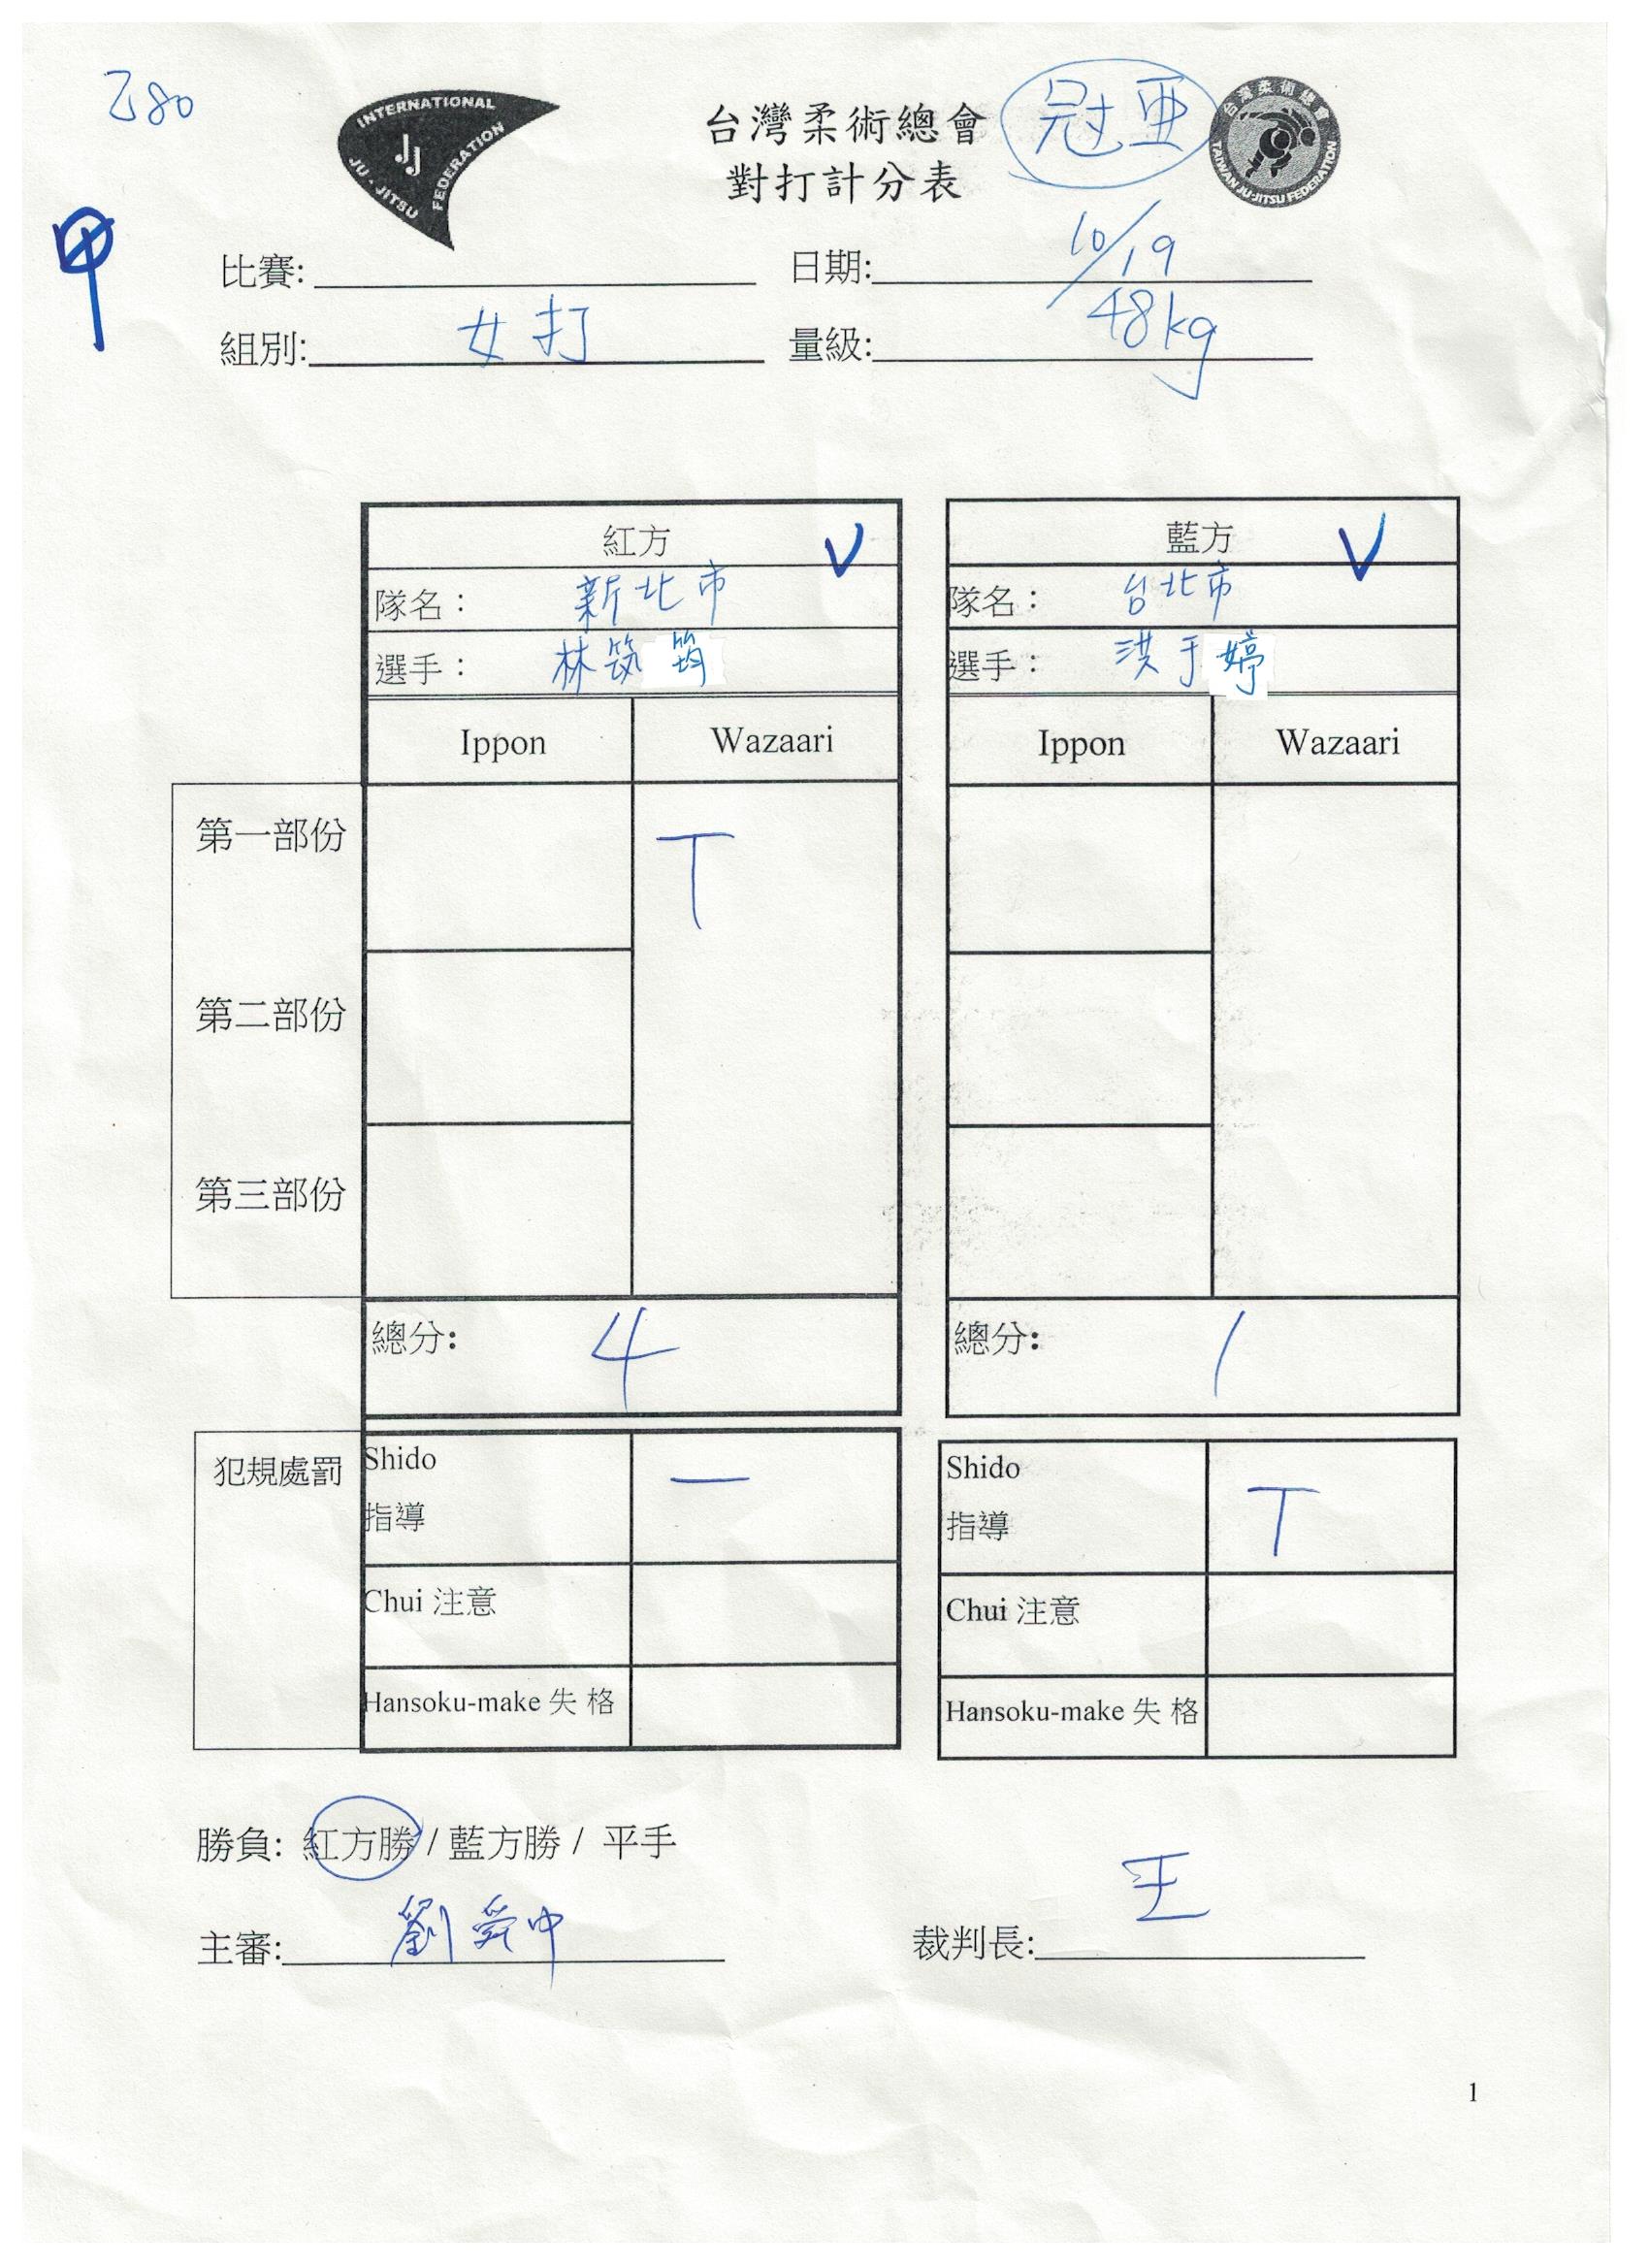 乙80
INTERNATIONAL
JJ
JU-JITSU FEDERATION
台灣柔術總會
冠亞
台灣柔術總會
TAIWAN JU-JITSU FEDERATION
對打計分表
甲
比賽:
日期: 10/19
組別: 女打
量級: 48kg
紅方 V
藍方 V
隊名： 新北市
隊名： 台北市
選手： 林筑筠
選手： 洪于婷
Ippon Wazaari
Ippon Wazaari
第一部份
T
第二部份
第三部份
總分: 4
總分: 1
犯規處罰
Shido 一
指導
Chui 注意
Hansoku-make 失 格
Shido
指導 T
Chui 注意
Hansoku-make 失 格
勝負: 紅方勝 / 藍方勝 / 平手
主審: 劉舜中
裁判長: 王
1